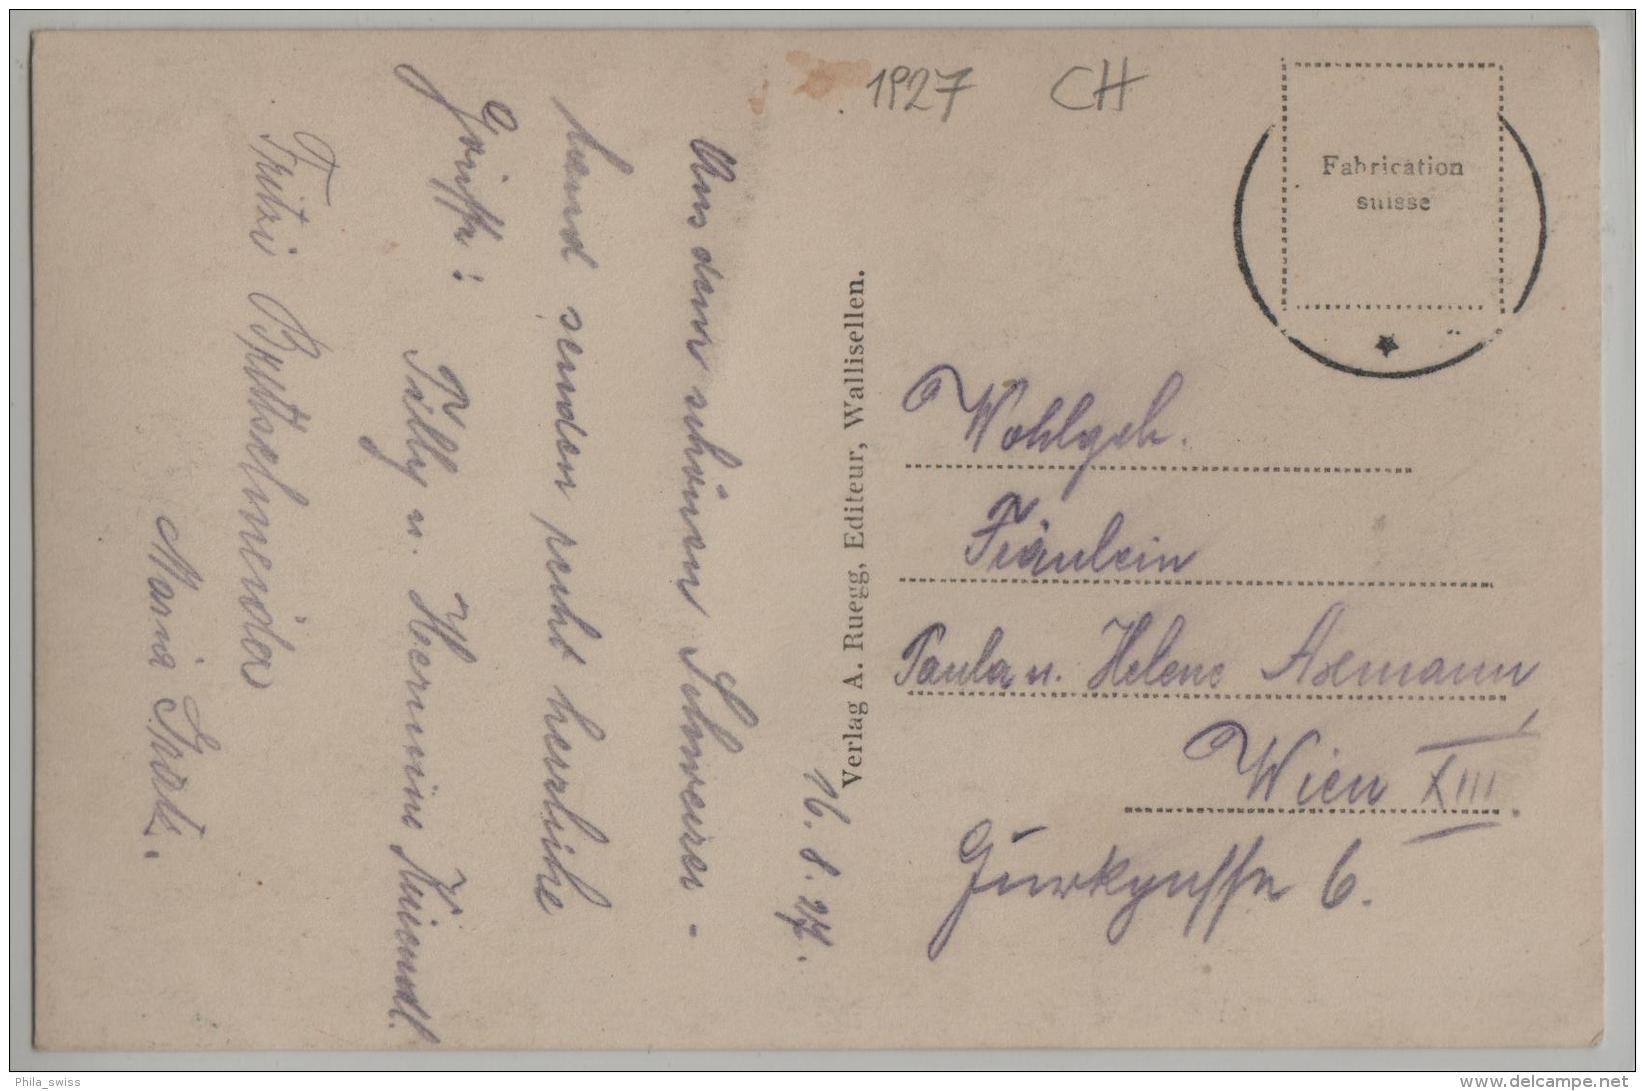 1927 CH
Fabrication
suisse
16. 8. 27.
Aus dem schönen Schweizer-
land senden recht herzliche
Grüße:
Tilly u. Hermine Kniendl.
Fritzi
Maria
Verlag A. Ruegg, Editeur, Wallisellen.
Wohlgeb.
Fräulein
Paula u. Helene Axmann
Wien XIII.
Gurkgasse 6.
Phila_swiss
www.delcampe.net